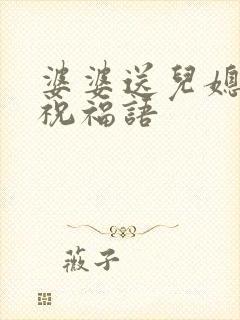 婆婆送兒媳
祝福語
薇子